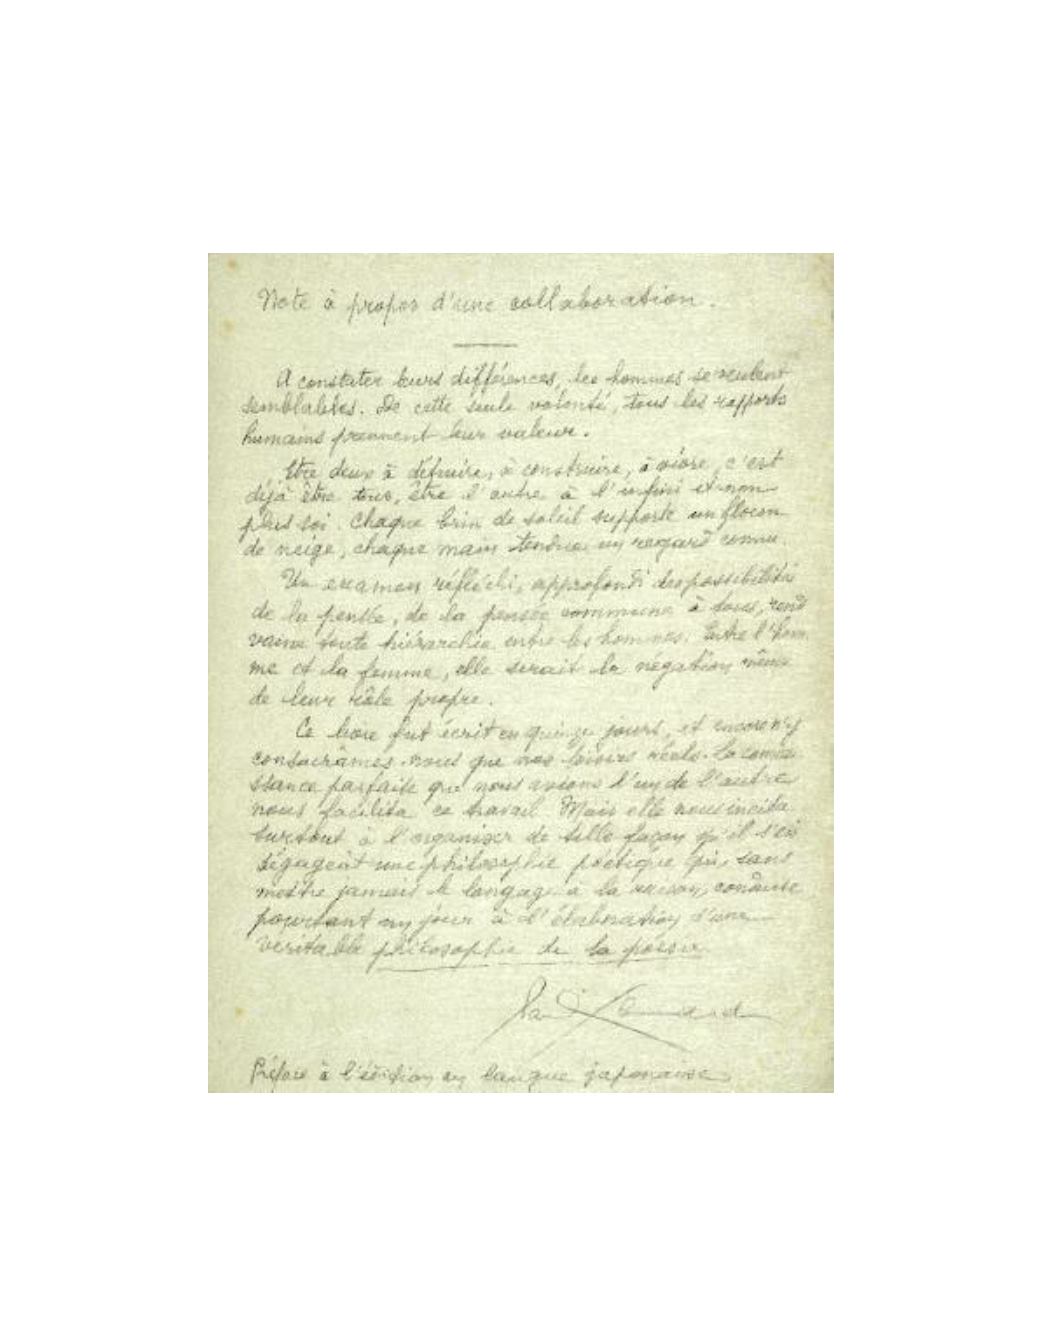 Note à propos d'une collaboration.
A constater leurs différences, les hommes se veulent
semblables. De cette seule volonté, tous les rapports
humains prennent leur valeur.
Etre deux à détruire, à construire, à vivre, c'est
déjà être tous, être l'autre à l'infini et non
plus soi. Chaque brin de soleil supporte un flocon
de neige, chaque main tendue un regard connu.
Un examen réfléchi, approfondi des possibilités
de la pensée, de la pensée commune à tous, rend
vaine toute hiérarchie entre les hommes. Entre l'hom
me et la femme, elle serait la négation même
de leur rôle propre.
Ce livre fut écrit en quinze jours, et encore n'y
consacrâmes-nous que nos loisirs réels. La connais
ssance parfaite que nous avions l'un de l'autre
nous facilita ce travail. Mais elle nous incita
surtout à l'organiser de telle façon qu'il s'en
dégageât une philosophie poétique qui, sans
mettre jamais le langage à la raison, conduise
pourtant un jour à l'élaboration d'une
véritable philosophie de la poésie.
Paul Eluard
Préface à l'édition en langue japonaise